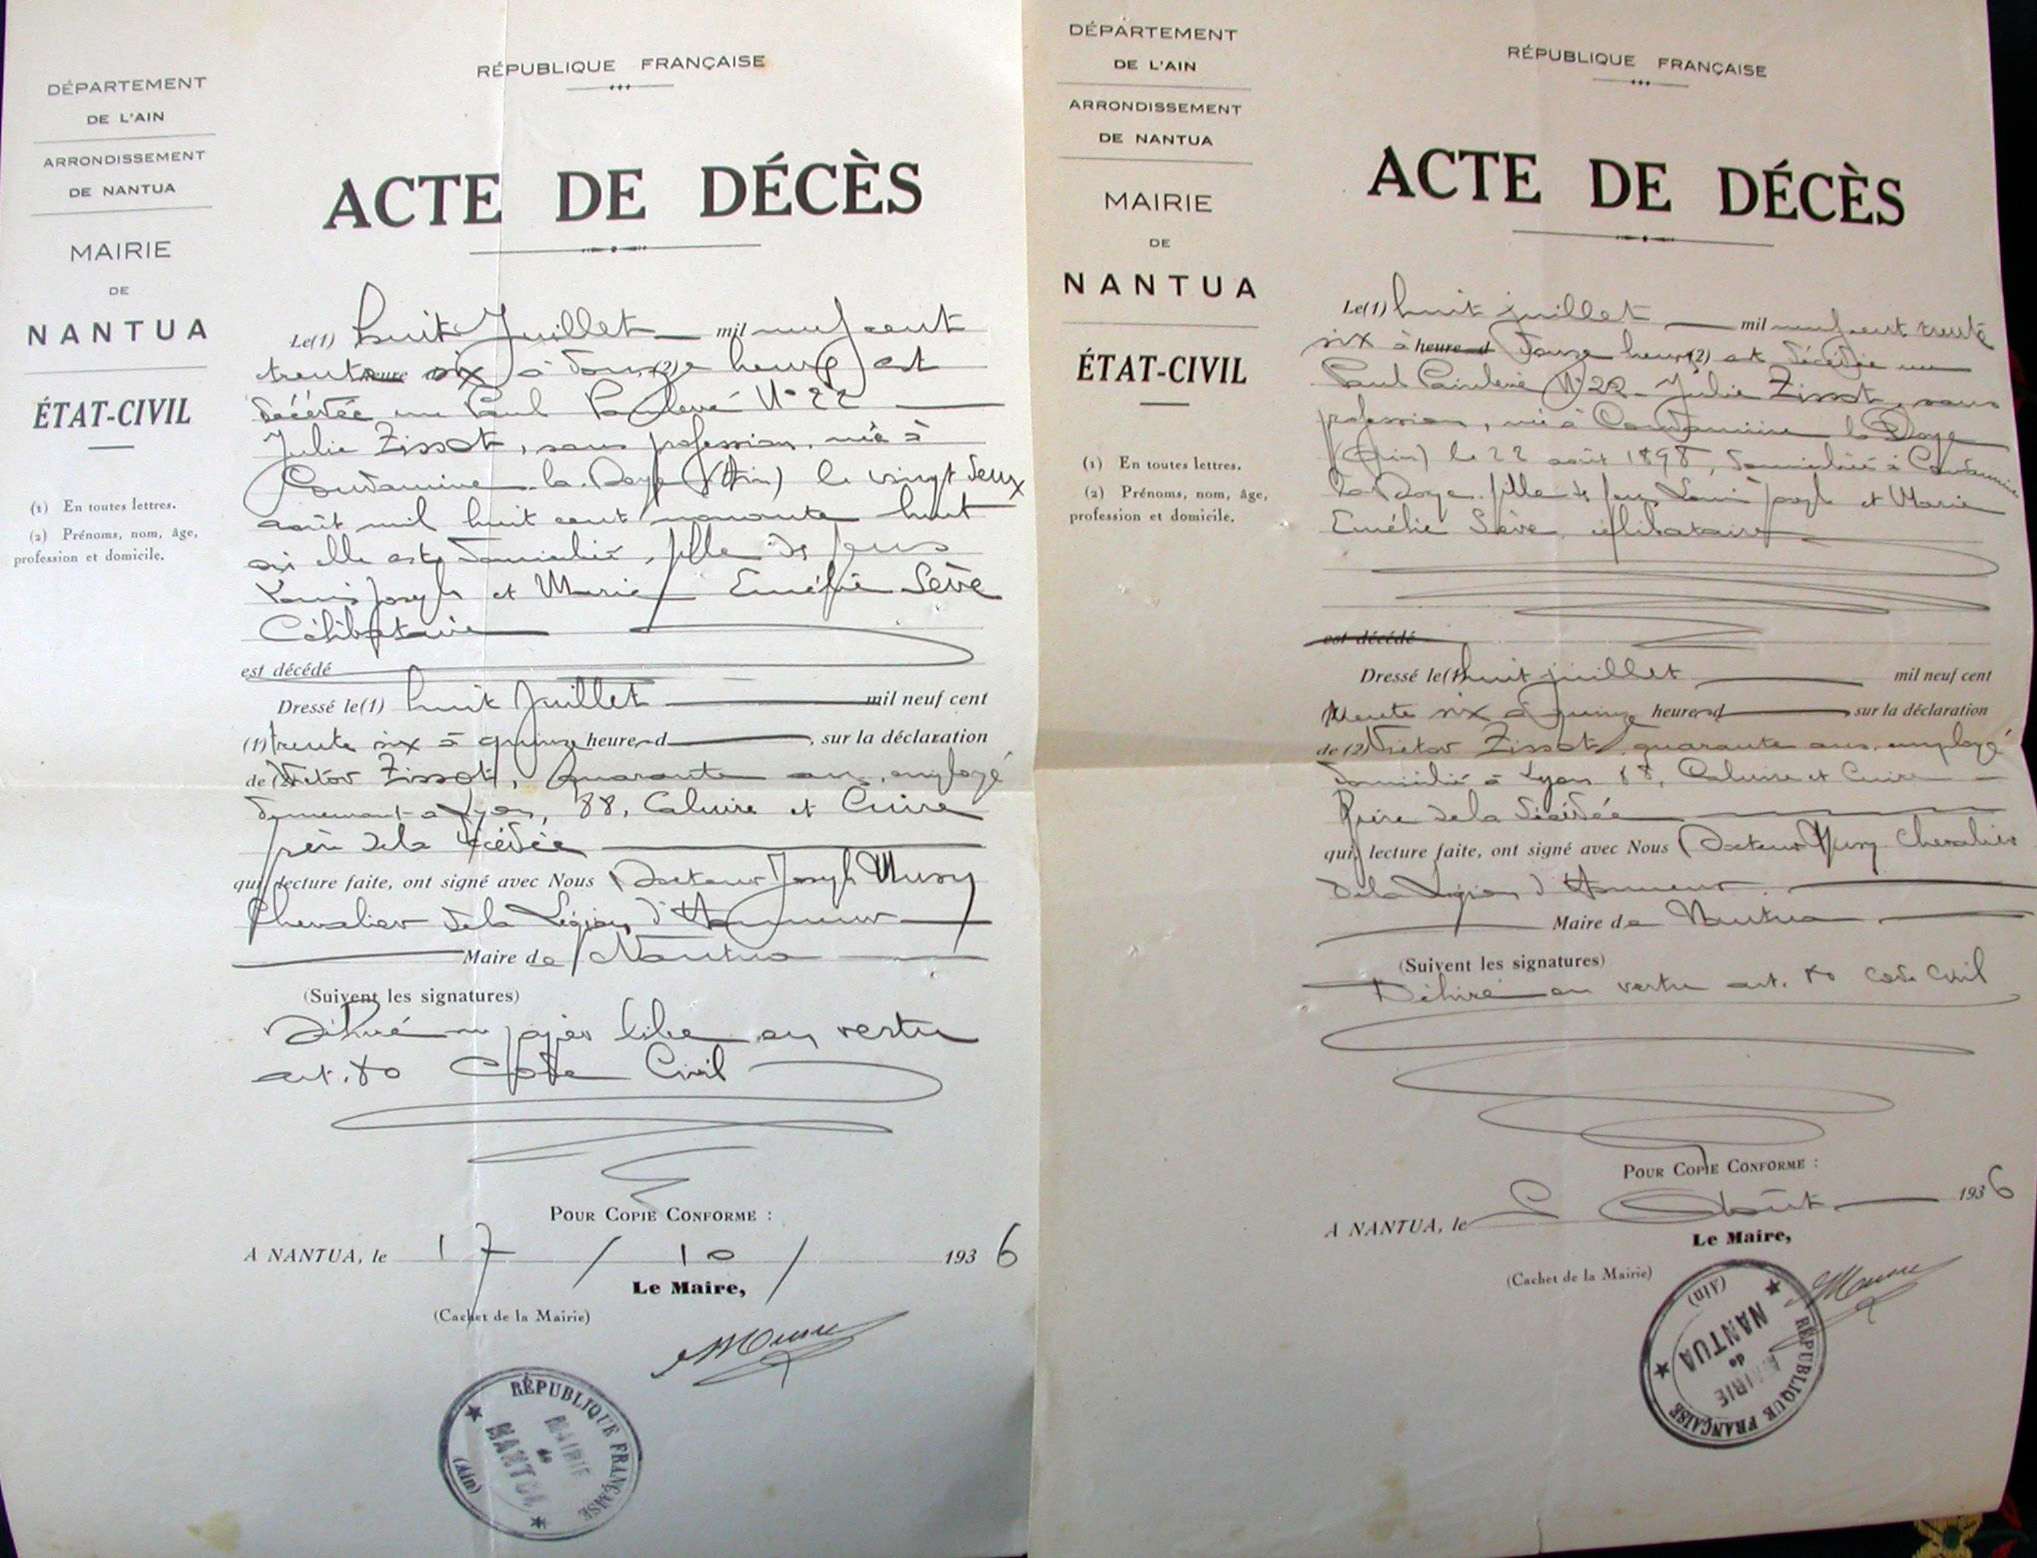 DÉPARTEMENT
DE L'AIN
ARRONDISSEMENT
DE NANTUA
MAIRIE
DE
NANTUA
ÉTAT-CIVIL
(1) En toutes lettres.
(2) Prénoms, nom, âge,
profession et domicile.
RÉPUBLIQUE FRANÇAISE
ACTE DE DÉCÈS
Le(1) huit Juillet mil neuf cent
trente heure six à douze (2) heures est
décédée rue Paul Painlevé N° 22
Julie Zissot, sans profession, née à
Condamine la Doye (Ain) le vingt deux
août mil huit cent nonante huit
où elle est domiciliée, fille de feus
Louis Joseph et Marie Emélie Sève
Célibataire
est décédé
Dressé le(1) huit Juillet mil neuf cent
(1) trente six à quinze heure d , sur la déclaration
de (2) Victor Zissot, quarante ans, employé
demeurant à Lyon, 88, Caluire et Cuire
frère de la décédée
qui, lecture faite, ont signé avec Nous Docteur Joseph Musy
Chevalier de la Légion d'Honneur
Maire de Nantua
(Suivent les signatures)
Délivré sur papier libre en vertu
art. 80 Code Civil
POUR COPIE CONFORME :
A NANTUA, le 17 / 10 / 1936
Le Maire,
(Cachet de la Mairie)
RÉPUBLIQUE FRANÇAISE
MAIRIE
de
NANTUA
(Ain)
DÉPARTEMENT
DE L'AIN
ARRONDISSEMENT
DE NANTUA
MAIRIE
DE
NANTUA
ÉTAT-CIVIL
(1) En toutes lettres.
(2) Prénoms, nom, âge,
profession et domicile.
RÉPUBLIQUE FRANÇAISE
ACTE DE DÉCÈS
Le(1) huit juillet mil neuf cent trente
six à heure d douze heures (2) est décédée rue
Paul Painlevé N° 22 Julie Zissot, sans
profession, née à Condamine la Doye
(Ain) le 22 août 1898, domiciliée à Condamine
la Doye fille de feus Louis Joseph et Marie
Emélie Sève, célibataire
est décédé
Dressé le(1) huit juillet mil neuf cent
trente six à quinze heure d sur la déclaration
de (2) Victor Zissot, quarante ans, employé
domicilié à Lyon 88, Caluire et Cuire
frère de la décédée
qui, lecture faite, ont signé avec Nous Docteur Musy Chevalier
de la Légion d'Honneur
Maire de Nantua
(Suivent les signatures)
Délivré en vertu art. 80 code civil
POUR COPIE CONFORME :
A NANTUA, le Août 1936
Le Maire,
(Cachet de la Mairie)
RÉPUBLIQUE FRANÇAISE
MAIRIE
de
NANTUA
(Ain)